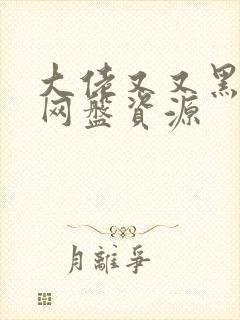 大佬又又黑
网盘資源
月離爭